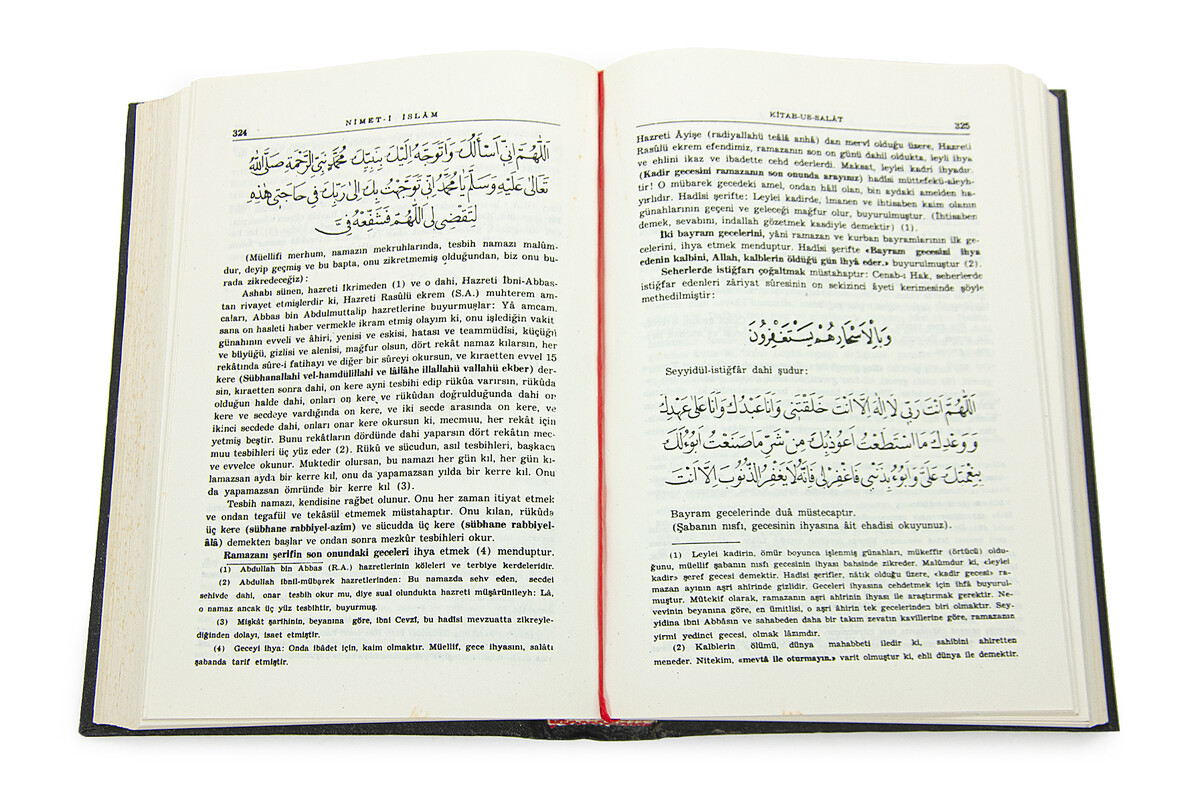 324
NİMET-İ İSLÂM
اَللّٰهُمَّ اِنّٖى اَسْأَلُكَ وَاَتَوَجَّهُ اِلَيْكَ بِنَبِيِّكَ مُحَمَّدٍ نَبِىِّ الرَّحْمَةِ صَلَّى اللّٰهُ
تَعَالٰى عَلَيْهِ وَسَلَّمَ يَا مُحَمَّدُ اِنّٖى تَوَجَّهْتُ بِكَ اِلٰى رَبِّكَ فٖى حَاجَتٖى هٰذِهِ
لِتُقْضٰى لٖى اَللّٰهُمَّ فَشَفِّعْهُ فِىَّ
(Müellifi merhum, namazın mekruhlarında, tesbih namazı malûm-
dur, deyip geçmiş ve bu bapta, onu zikretmemiş olduğundan, biz onu bu-
rada zikredeceğiz) :
Ashabı sünen, hazreti İkrimeden (1) ve o dahi, Hazreti İbni-Abbas-
tan rivayet etmişlerdir ki, Hazreti Rasûlü ekrem (S.A.) muhterem am-
caları, Abbas bin Abdulmuttalip hazretlerine buyurmuşlar: Yâ amcam,
sana on hasleti haber vermekle ikram etmiş olayım ki, onu işlediğin vakit
günahının evveli ve âhiri, yenisi ve eskisi, hatası ve teammüdisi, küçüğü
ve büyüğü, gizlisi ve alenisi, mağfur olsun, dört rekât namaz kılarsın, her
rekâtında sûre-i fatihayı ve diğer bir sûreyi okursun, ve kıraetten evvel 15
kere (Sübhanallahi vel-hamdülillahi ve lâilâhe illallahü vallahü ekber) der-
sin, kıraetten sonra dahi, on kere ayni tesbihi edip rükûa varırsın, rükûda
olduğun halde dahi, onları on kere ve rükûdan doğrulduğunda dahi on
kere ve secdeye vardığında on kere, ve iki secde arasında on kere, ve
ikinci secdede dahi, onları onar kere okursun ki, mecmuu, her rekât için
yetmiş beştir. Bunu rekâtların dördünde dahi yaparsın dört rekâtın mec-
muu tesbihleri üç yüz eder (2). Rükû ve sücudun, asıl tesbihleri, başkaca
ve evvelce okunur. Muktedir olursan, bu namazı her gün kıl, her gün kı-
lamazsan ayda bir kerre kıl, onu da yapamazsan yılda bir kerre kıl. Onu
da yapamazsan ömründe bir kerre kıl (3).
Tesbih namazı, kendisine rağbet olunur. Onu her zaman itiyat etmek
ve ondan tegafül ve tekâsül etmemek müstahaptır. Onu kılan, rükûda
üç kere (sübhane rabbiyel-azîm) ve sücudda üç kere (sübhane rabbiyel-
âlâ) demekten başlar ve ondan sonra mezkûr tesbihleri okur.
Ramazanı şerifin son onundaki geceleri ihya etmek (4) menduptur.
(1) Abdullah bin Abbas (R.A.) hazretlerinin köleleri ve terbiye kerdeleridir.
(2) Abdullah ibnil-mübarek hazretlerinden: Bu namazda sehv eden, secdei
sehivde dahi, onar tesbih okur mu, diye sual olundukta hazreti müşarünileyh: Lâ,
o namaz ancak üç yüz tesbihtir, buyurmuş.
(3) Mişkât şarihinin, beyanına göre, ibni Cevzî, bu hadîsi mevzuatta zikreyle-
diğinden dolayı, isaet etmiştir.
(4) Geceyi ihya: Onda ibâdet için, kaim olmaktır. Müellif, gece ihyasını, salâtı
şabanda tarif etmiştir.
KİTAB-US-SALÂT
325
Hazreti Âyişe (radiyallahü teâlâ anhâ) dan mervî olduğu üzere, Hazreti
Rasûlü ekrem efendimiz, ramazanın son on günü dahil oldukta, leyli ihya
ve ehlini ikaz ve ibadette cehd ederlerdi. Maksat, leylei kadri ihyadır.
(Kadir gecesini ramazanın son onunda arayınız) hadîsi müttefekü-aleyh-
tir! O mübarek gecedeki amel, ondan hâli olan, bin aydaki amelden ha-
yırlıdır. Hadîsi şerifte: Leylei kadirde, îmanen ve ihtisaben kaim olanın
günahlarının geçeni ve geleceği mağfur olur, buyurulmuştur. (İhtisaben
demek, sevabını, indallah gözetmek kasdiyle demektir) (1).
İki bayram gecelerini, yâni ramazan ve kurban bayramlarının ilk ge-
celerini, ihya etmek menduptur. Hadîsi şerifte «Bayram gecesini ihya
edenin kalbini, Allah, kalblerin öldüğü gün ihya eder.» buyurulmuştur (2).
Seherlerde istiğfarı çoğaltmak müstahaptır: Cenab-ı Hak, seherlerde
istiğfar edenleri zâriyat sûresinin on sekizinci âyeti kerimesinde şöyle
methedilmiştir:
وَبِالْاَسْحَارِ هُمْ يَسْتَغْفِرُونَ
Seyyidül-istiğfâr dahi şudur:
اَللّٰهُمَّ اَنْتَ رَبّٖى لَا اِلٰهَ اِلَّا اَنْتَ خَلَقْتَنٖى وَاَنَا عَبْدُكَ وَاَنَا عَلٰى عَهْدِكَ
وَوَعْدِكَ مَا اسْتَطَعْتُ اَعُوذُ بِكَ مِنْ شَرِّ مَا صَنَعْتُ اَبُوءُ لَكَ
بِنِعْمَتِكَ عَلَىَّ وَاَبُوءُ بِذَنْبٖى فَاغْفِرْ لٖى فَاِنَّهُ لَا يَغْفِرُ الذُّنُوبَ اِلَّا اَنْتَ
Bayram gecelerinde duâ müstecaptır.
(Şabanın nısfı, gecesinin ihyasına âit ehadisi okuyunuz).
(1) Leylei kadirin, ömür boyunca işlenmiş günahları, mükeffir (örtücü) oldu-
ğunu, müellif şabanın nısfı gecesinin ihyası bahsinde zikreder. Malûmdur ki, «leylei
kadir» şeref gecesi demektir. Hadîsi şerifler, nâtık olduğu üzere, «kadir gecesi» ra-
mazan ayının aşri ahirinde gizlidir. Geceleri ihyasına cehdetmek için ihfâ buyurul-
muştur. Mütekif olarak, ramazanın aşri ahirinin ihyası ile araştırmak gerektir. Ne-
vevinin beyanına göre, en ümitlisi, o aşri âhirin tek gecelerinden biri olmaktır. Sey-
yidina ibni Abbâsın ve sahabeden daha bir takım zevatın kavillerine göre, ramazanın
yirmi yedinci gecesi, olmak lâzımdır.
(2) Kalblerin ölümü, dünya mahabbeti iledir ki, sahibini ahiretten
meneder. Nitekim, «mevtâ ile oturmayın.» varit olmuştur ki, ehli dünya ile demektir.